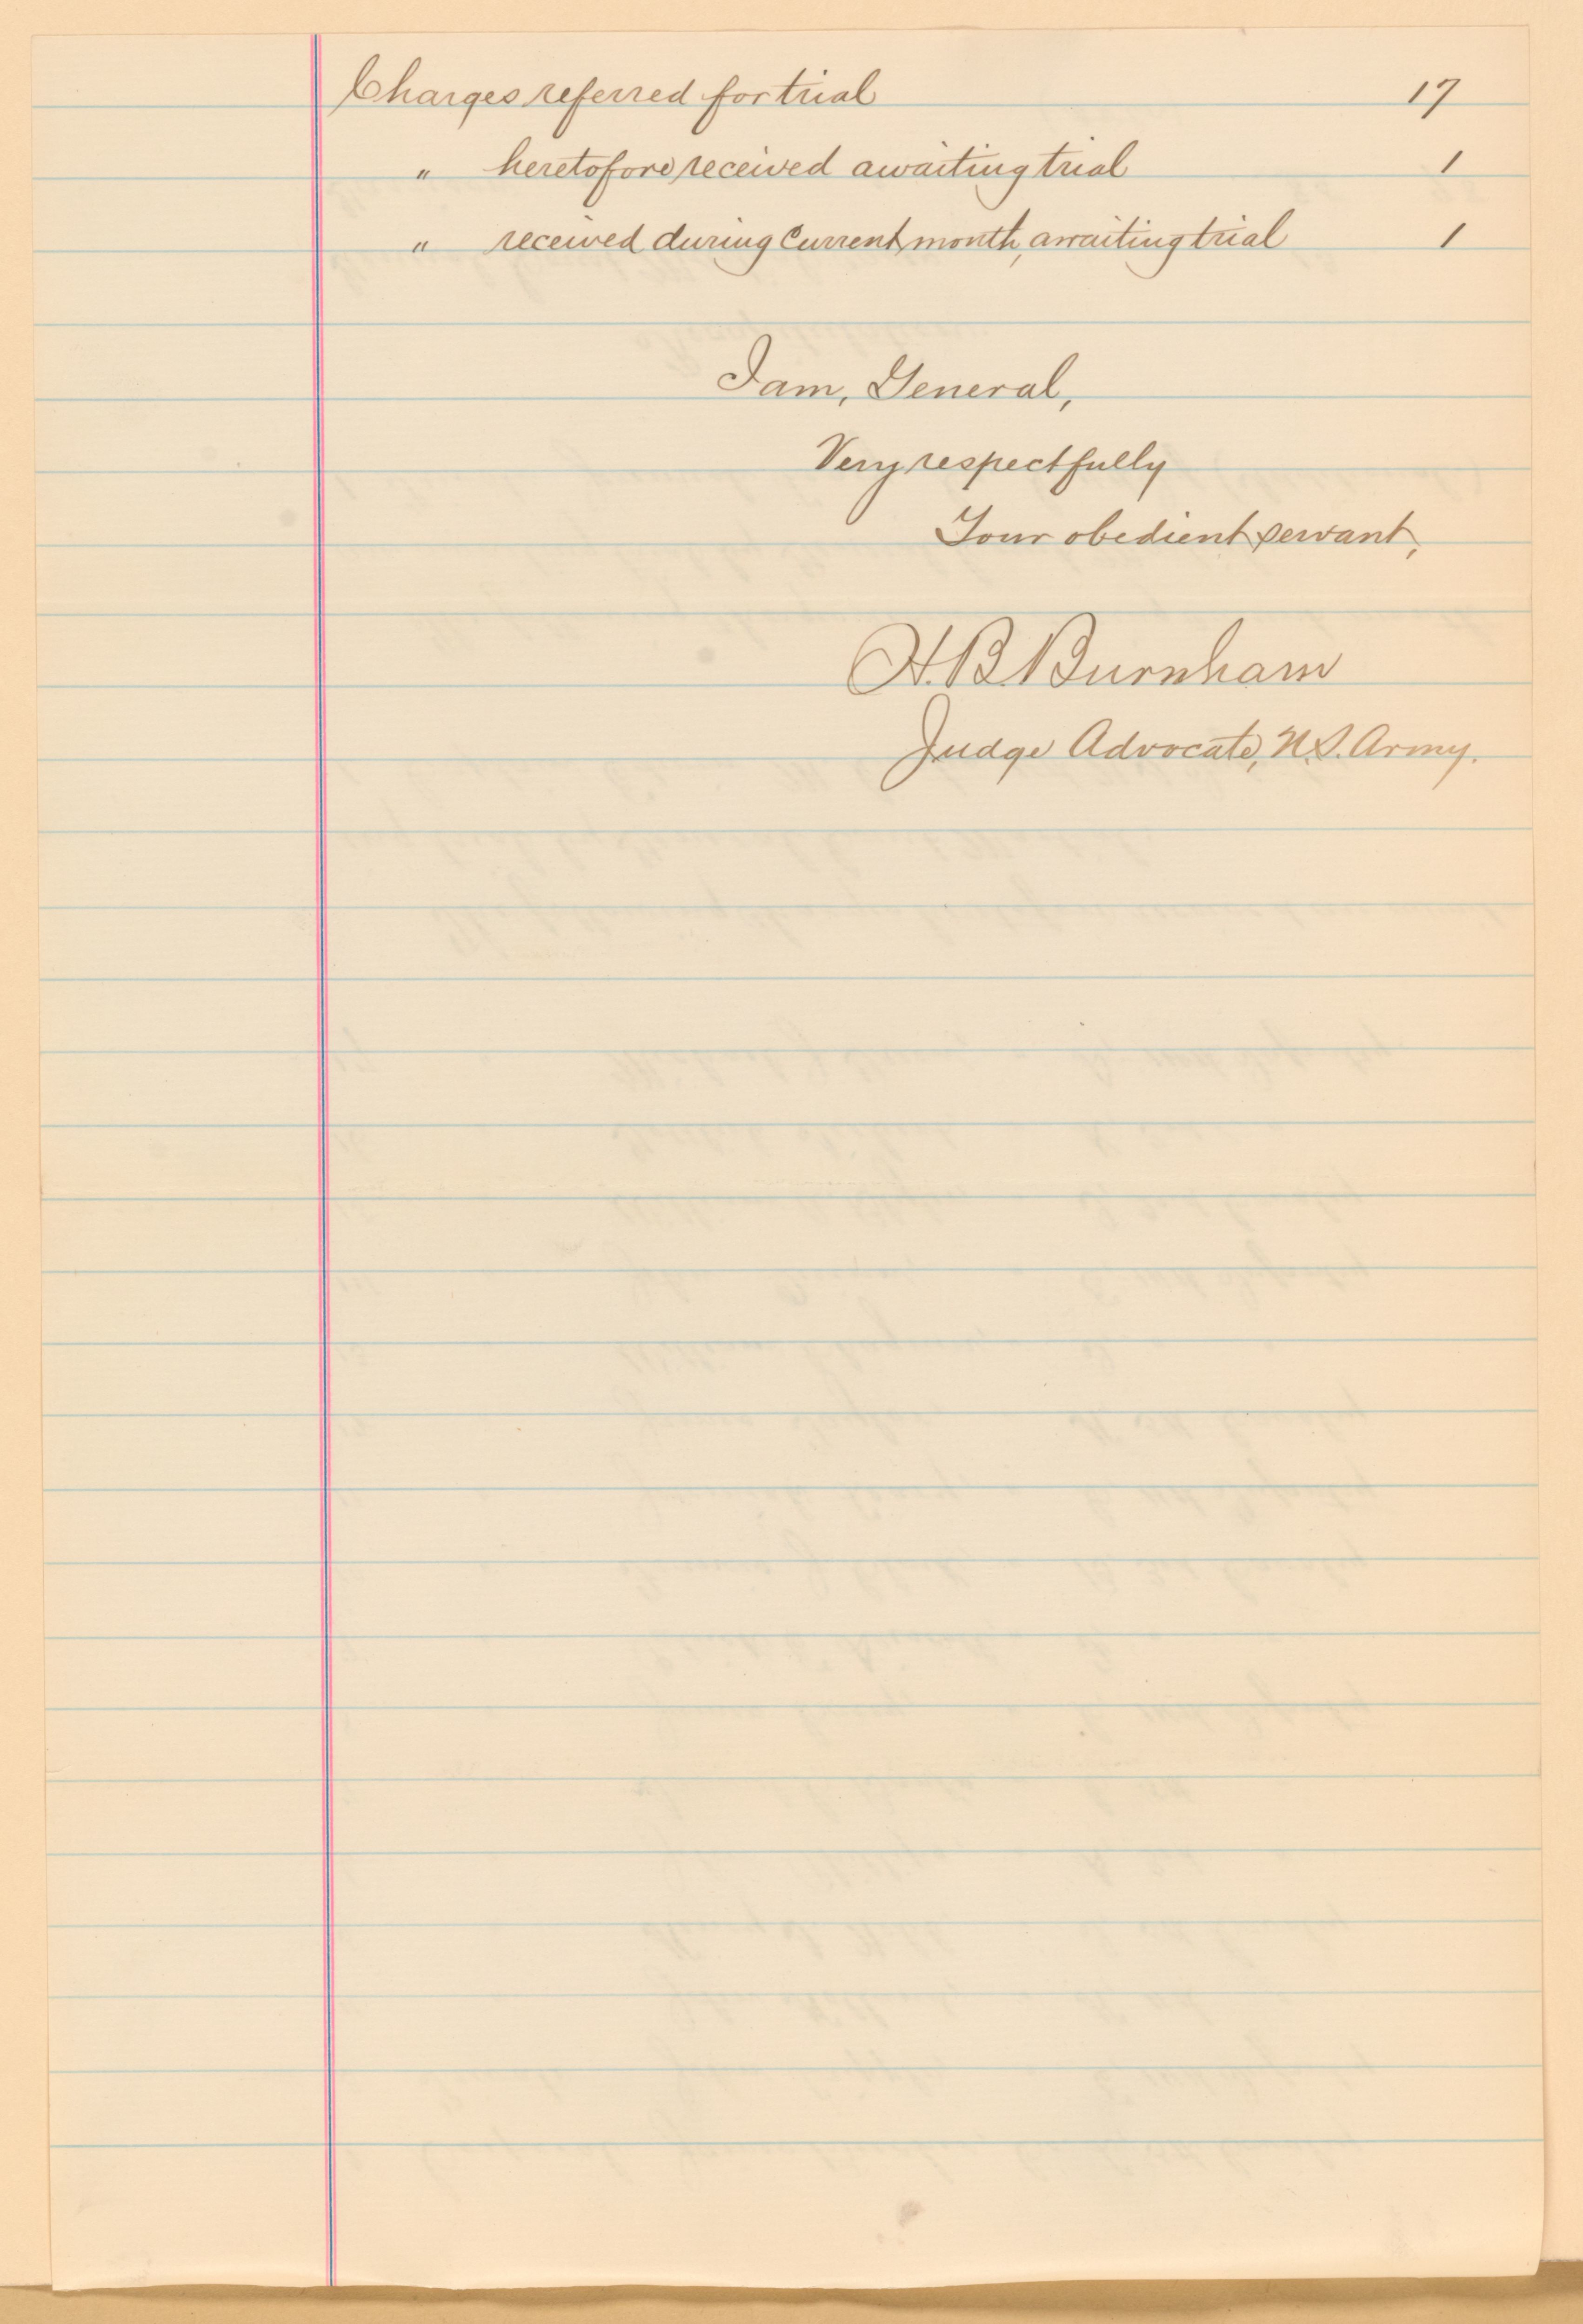 Charges referred for trial 17
" heretofore received awaiting trial 1
" received during Current month, awaiting trial 1
I am, General,
Very respectfully
Your obedient servant,
H.B. Burnham
Judge Advocate, U.S. Army.